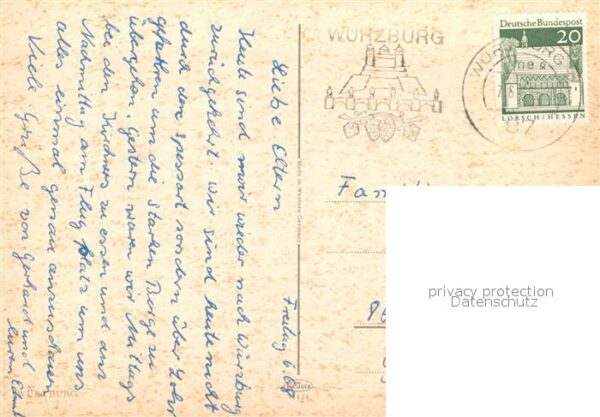 Freitag 6.
Liebe Eltern
Heute sind wir wieder nach Würzburg
zurückgekehrt wir sind heute nicht
durch den Spessart sondern über Lohr
gefahren um die Starken Berge zu
übergehen. Gestern waren wir Mittags
bei den Kirchners zu essen und am
Nachmittag am Flugplatz um uns
alles einmal genau anzuschauen
Viele Grüße von Gerhard und
WÜRZBURG
Made in Western Germany
WÜRZBURG
Deutsche Bundespost
20
LORSCH/HESSEN
Fam
privacy protection
Datenschutz